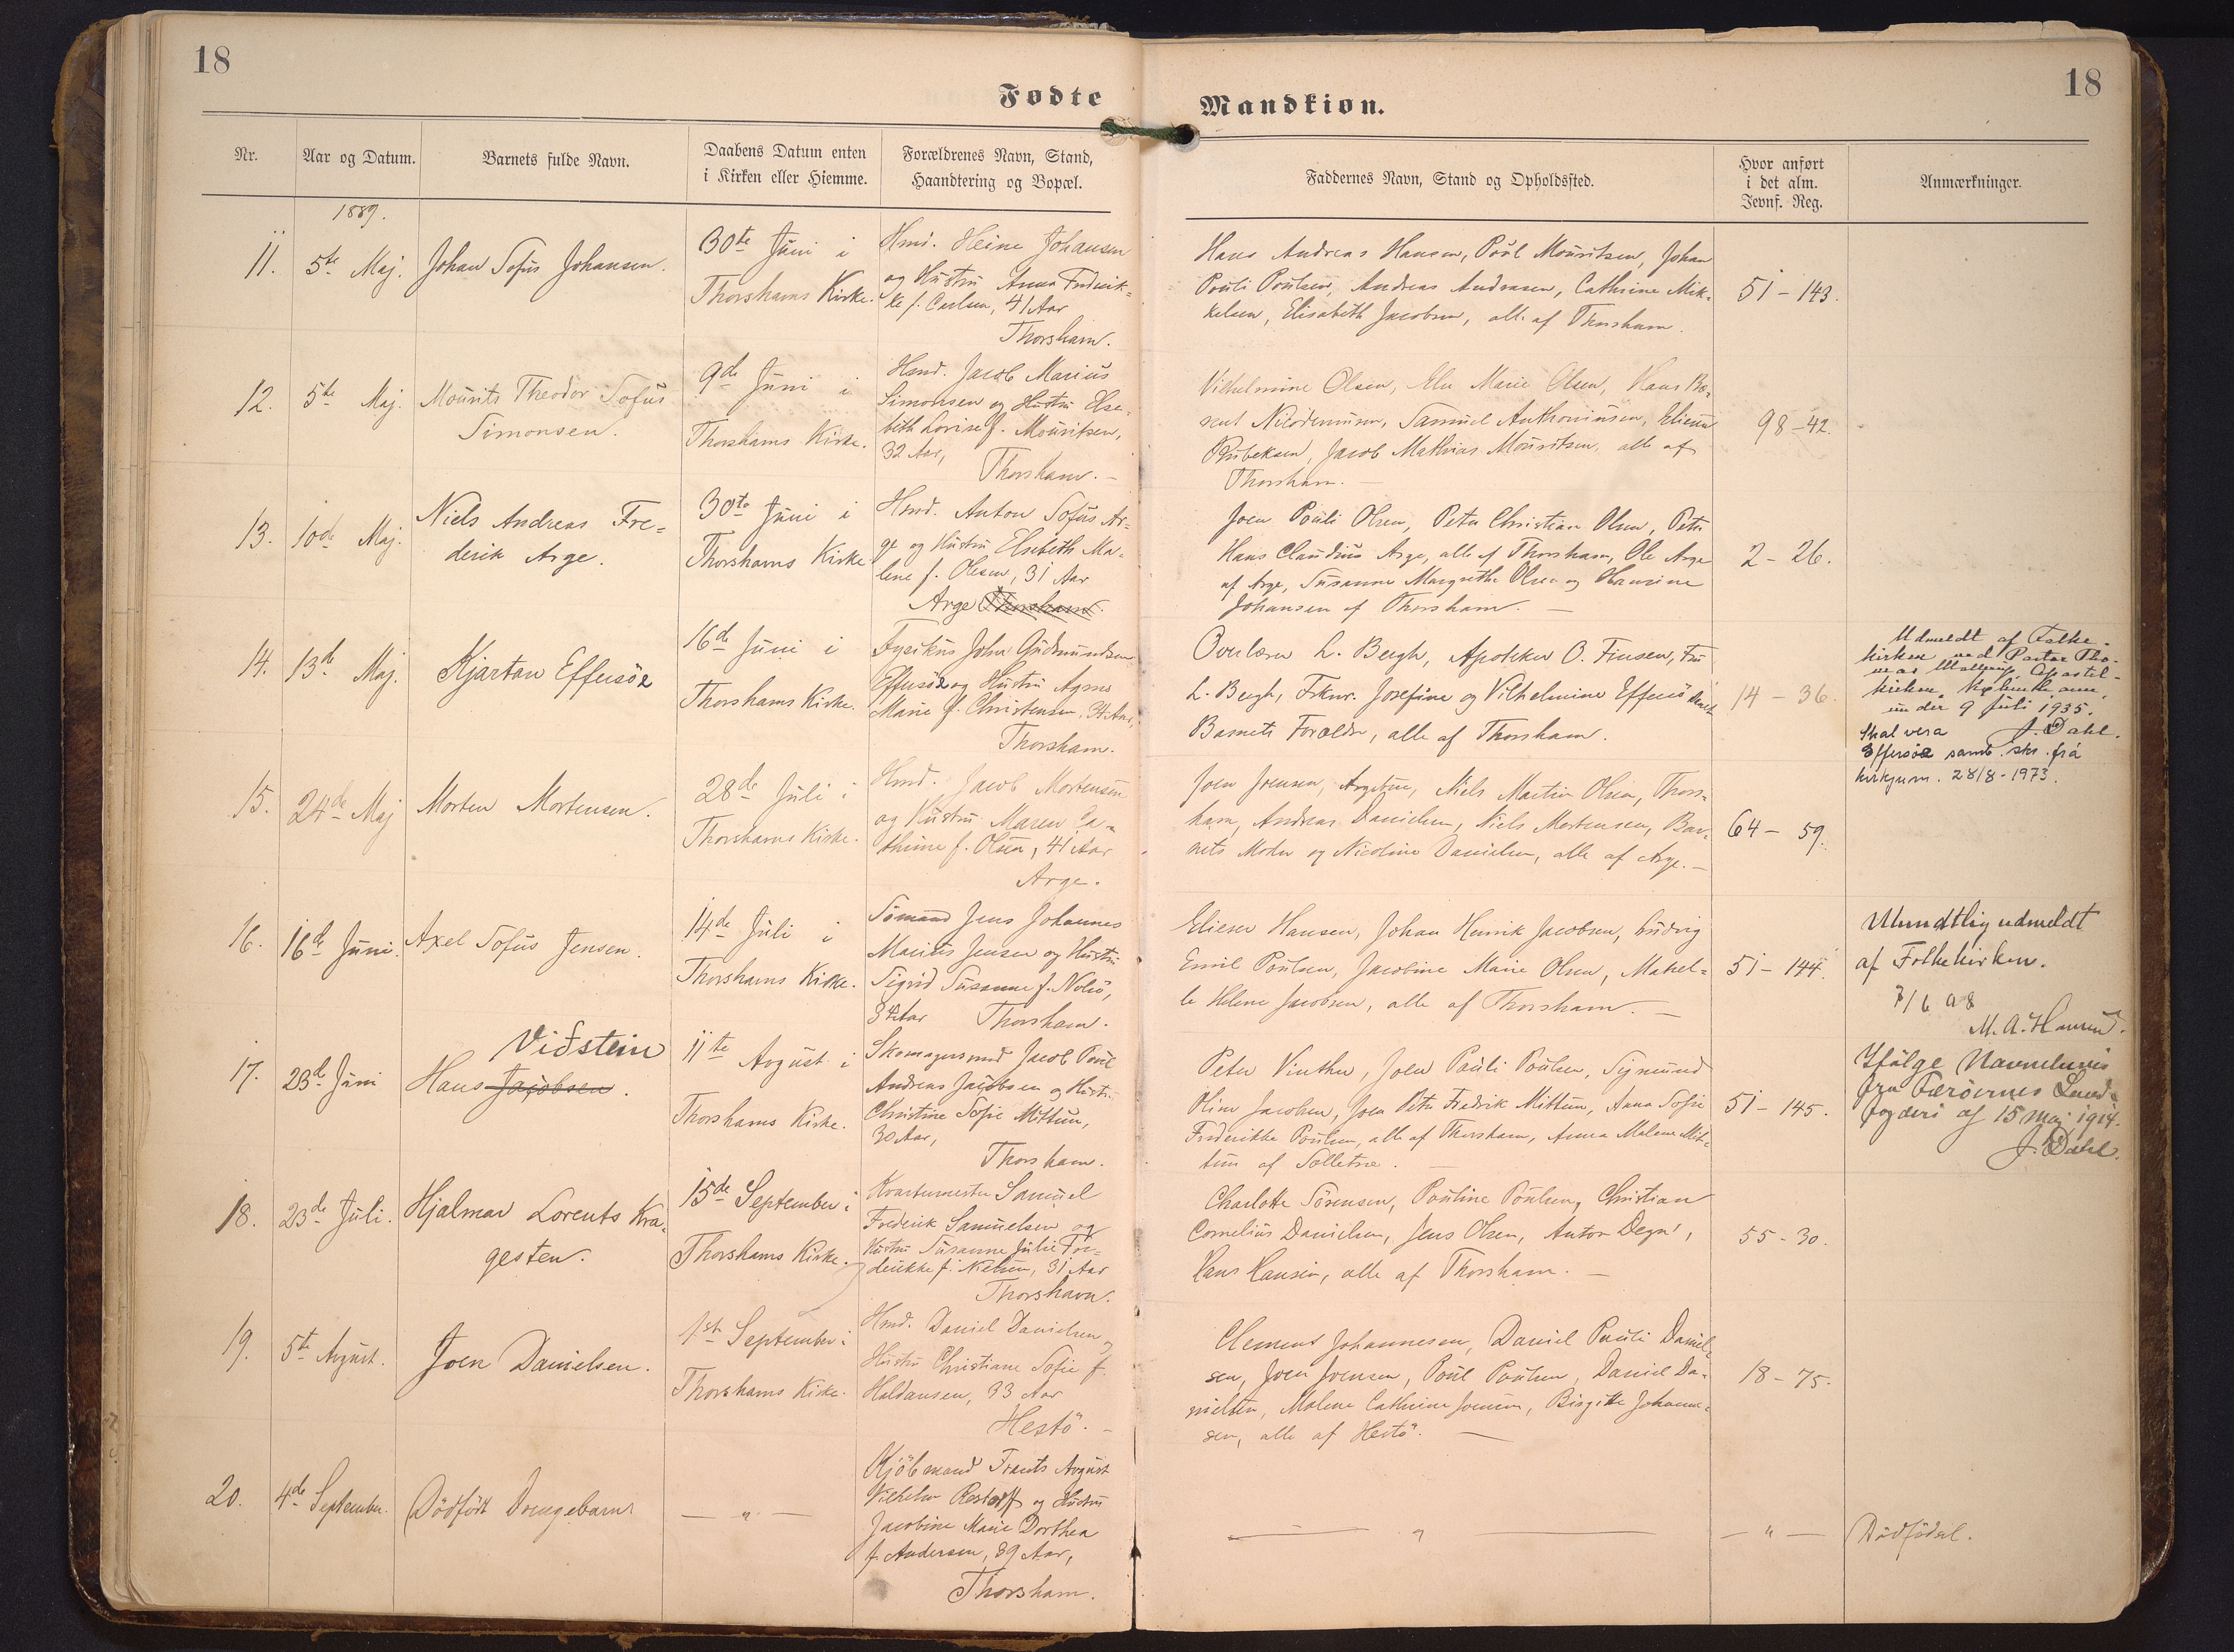 18
18
Fødte
Mandkiøn.
Nr.
Aar og Datum.
Barnets fulde Navn.
Daabens Datum enten
i Kirken eller Hiemme.
Forældrenes Navn, Stand,
Haandtering og Bopæl.
Faddernes Navn, Stand og Opholdssted.
Hvor anført
i det alm.
Jevnf. Reg.
Anmærkninger.
1889.
11.
5te Maj.
Johan Sofus Johansen.
30te Juni i
Thorshavns Kirke.
Hmd. Heine Johansen
og Hustru Anna Frederik-
ke f. Carlsen, 41 Aar
Thorshavn.
Hans Andreas Hansen, Poul Mouritsen, Johan
Pouli Poulsen, Andreas Andreasen, Cathrine Mik-
kelsen, Elisabeth Jacobsen, alle af Thorshavn.
51 - 143.
12.
5te Maj.
Mourits Theodor Sofus
Simonsen.
9de Juni i
Thorshavns Kirke.
Hmd. Jacob Marius
Simonsen og Hustru Else-
beth Lovise f. Mouritsen,
32 Aar,
Thorshavn. -
Vilhelmine Olsen, Marie Olsen, Hans
Nicodemusen, Samuel Anthoniusen,
Jacob Mathias Mouritsen, alle af
Thorshavn. -
98 - 42.
13.
10de Maj.
Niels Andreas Fre-
derik Arge.
30te Juni i
Thorshavns Kirke
Hmd. Anton Sofus Ar-
ge og Hustru Elsebeth Ma-
lene f. Olsen, 31 Aar
Arge Thorshavn.
Joen Pouli Olsen, Peter Christian Olsen, Peter
Hans Claudius Arge, alle af Thorshavn, Ole Arge
af Arge, Susanne Margrethe Olsen og Hansine
Johansen af Thorshavn. -
2 - 26.
14.
13de Maj.
Kjartan Effersöe
16de Juni i
Thorshavns Kirke.
Fysikus John Gudmundsen
Effersöe og Hustru Agnes
Marie f. Christensen, 34 Aar,
Thorshavn.
Overlærer L. Bergh, Apotheker O. Finsen, Fru
L. Bergh, Frknr. Josefine og Vilhelmine Effersö samt
Barnets Forældre, alle af Thorshavn.
14 - 36.
Udmeldt af Folke-
kirken ved Pastor Tho-
mas Apostel-
kirken,
under 9 Juli 1935.
J. Dahl.
Skal vera
Effersøe samb. skr. frá
kirkjum. 28/8 - 1973.
15.
24de Maj
Morten Mortensen.
28de Juli i
Thorshavns Kirke.
Hmd. Jacob Mortensen
og Hustru Maren Ca-
thrine f. Olsen, 41 Aar
Arge.
Joen Joensen, Niels Martin Olsen, Thors-
havn, Andreas Danielsen, Niels Mortensen, Bar-
nets Moder og Nicoline Danielsen, alle af Arge. -
64 - 59.
16.
16de Juni.
Axel Sofus Jensen.
14de Juli i
Thorshavns Kirke.
Sömand Jens Johannes
Jensen og Hustru
Sigrid Susanne f. Nolsö,
34 Aar Thorshavn.
Elieser Hansen, Johan Henrik Jacobsen, Ludvig
Emil Poulsen, Jacobine Marie Olsen, Makel-
le Helene Jacobsen, alle af Thorshavn. -
51 - 144.
Mundtlig udmeldt
af Folkekirken.
7/6 08
M. A. Hansen.
17.
23de Juni
Viðstein
Hans Jacobsen.
11te Avgust i
Thorshavns Kirke.
Skomagersvend Jacob Poul
Andreas Jacobsen og Hustru
Christine Sofie Mittun,
30 Aar,
Thorshavn.
Peter Vinther, Joen Pauli Poulsen, Sigmund
Oliver Jacobsen, Joen Peter Fredrik Mittun, Anna Sofie
Frederikke Poulsen, alle af Thorshavn, Anna Malene Mit-
tun af
51 - 145.
Ifölge Navnebevis
fra Færöernes Land-
fogderi af 15 Maj 1914.
J. Dahl.
18.
23de Juli.
Hjalmar Lorents Kra-
gesten.
15de September i
Thorshavns Kirke.
Samuel
Frederik Samuelsen og
Hustru Susanne Julie Fre-
derikke f. Nielsen, 31 Aar
Thorshavn.
Charlotte Sörensen, Pouline Poulsen, Christian
Cornelius Danielsen, Jens Olsen, Anton Degn,
Hans Hansen, alle af Thorshavn. -
55 - 30.
19.
5te Avgust.
Joen Danielsen.
1ste September i
Thorshavns Kirke.
Hmd. Daniel Danielsen og
Hustru Christiane Sofie f.
Haldansen, 33 Aar
Hestö. -
Clemens Johannesen, Daniel Pauli Daniel-
sen, Joen Joensen, Poul Poulsen, Daniel Da-
nielsen, Malene Cathrine Joensen, Birgitte Johanne-
sen, alle af Hestö. -
18 - 75.
20.
4de September.
Dödfödt Drengebarn
- " -
Kjöbmand Frants Avgust
Vilhelm Restorff og Hustru
Jacobine Marie Dorthea
f. Andersen, 39 Aar,
Thorshavn.
- " -
- " -
Dödfödsel.